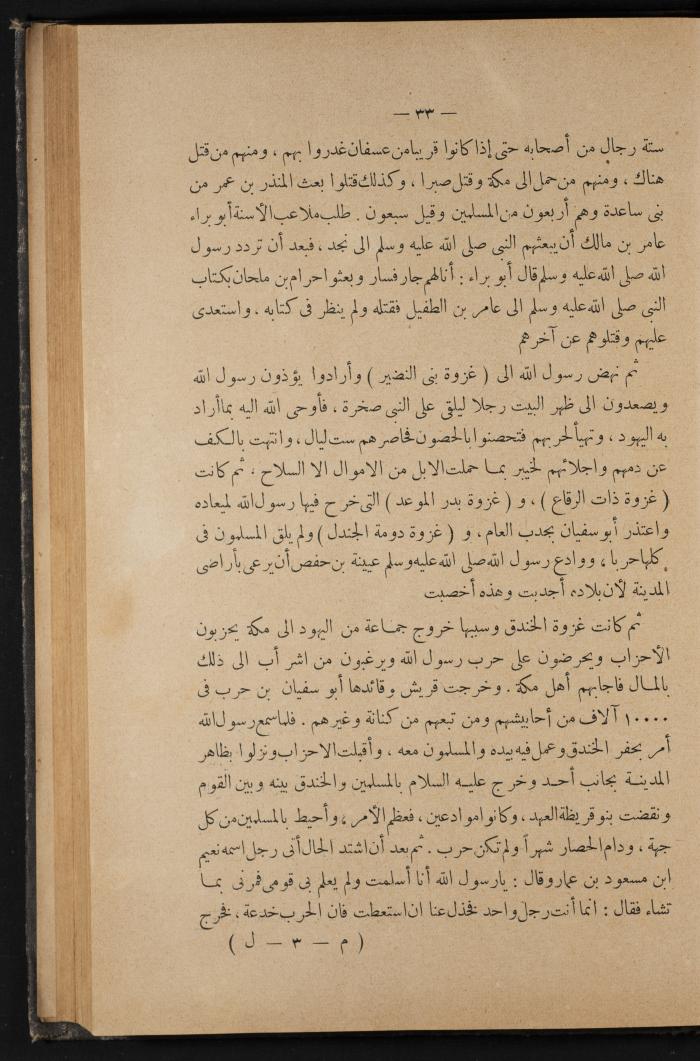 — ٣٣ —
ستة رجال من أصحابه حتى إذا كانوا قريبا من عسفان غدروا بهم ، ومنهم من قتل
هناك ، ومنهم من حمل الى مكة وقتل صبرا ، وكذلك قتلوا بعث المنذر بن عمر من
بنى ساعدة وهم أربعون من المسلمين وقيل سبعون . طلب ملاعب الأسنة أبو براء
عامر بن مالك أن يبعثهم النبى صلى الله عليه وسلم الى نجد ، فبعد أن تردد رسول
الله صلى الله عليه وسلم قال أبو براء : أنا لهم جار فسار وبعثوا حرام بن ملحان بكتاب
النبى صلى الله عليه وسلم الى عامر بن الطفيل فقتله ولم ينظر فى كتابه . واستعدى
عليهم وقتلوهم عن آخرهم
ثم نهض رسول الله الى ( غزوة بنى النضير ) وأرادوا يؤذون رسول الله
ويصعدون الى ظهر البيت رجلا ليلقى على النبى صخرة ، فأوحى الله اليه بما أراد
به اليهود ، وتهيأ لحربهم فتحصنوا بالحصون فحاصرهم ست ليال ، وانتهت بالكف
عن دمهم واجلائهم لخيبر بما حملت الابل من الاموال الا السلاح ، ثم كانت
( غزوة ذات الرقاع ) ، و ( غزوة بدر الموعد ) التى خرج فيها رسول الله لميعاده
واعتذر أبو سفيان بجدب العام ، و ( غزوة دومة الجندل ) ولم يلق المسلمون فى
كلها حربا ، ووادع رسول الله صلى الله عليه وسلم عيينة بن حفص أن يرعى بأراضى
المدينة لأن بلاده أجدبت وهذه أخصبت
ثم كانت غزوة الخندق وسببها خروج جماعة من اليهود الى مكة يحزبون
الأحزاب ويحرضون على حرب رسول الله ويرغبون من اشر أب الى ذلك
بالمال فاجابهم أهل مكة . وخرجت قريش وقائدها أبو سفيان بن حرب فى
١٠٠٠٠ آلاف من أحابيشهم ومن تبعهم من كنانة وغيرهم . فلما سمع رسول الله
أمر بحفر الخندق وعمل فيه بيده والمسلمون معه ، وأقبلت الاحزاب ونزلوا بظاهر
المدينة بجانب أحد وخرج عليه السلام بالمسلمين والخندق بينه وبين القوم
ونقضت بنو قريظة العهد ، وكانوا موادعين ، فعظم الأمر ، وأحيط بالمسلمين من كل
جهة ، ودام الحصار شهراً ولم تكن حرب . ثم بعد أن اشتد الحال أتى رجل اسمه نعيم
ابن مسعود بن عمار وقال : يارسول الله أنا أسلمت ولم يعلم بى قومى فمرنى بما
تشاء فقال : انما أنت رجل واحد فخذل عنا ان استعطت فان الحرب خدعة ، فخرج
( م — ٣ — ل )